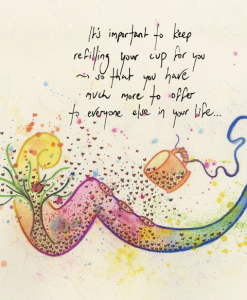 It's important to keep
refilling your cup for you
~ so that you have
much more to offer
to everyone else in your life...